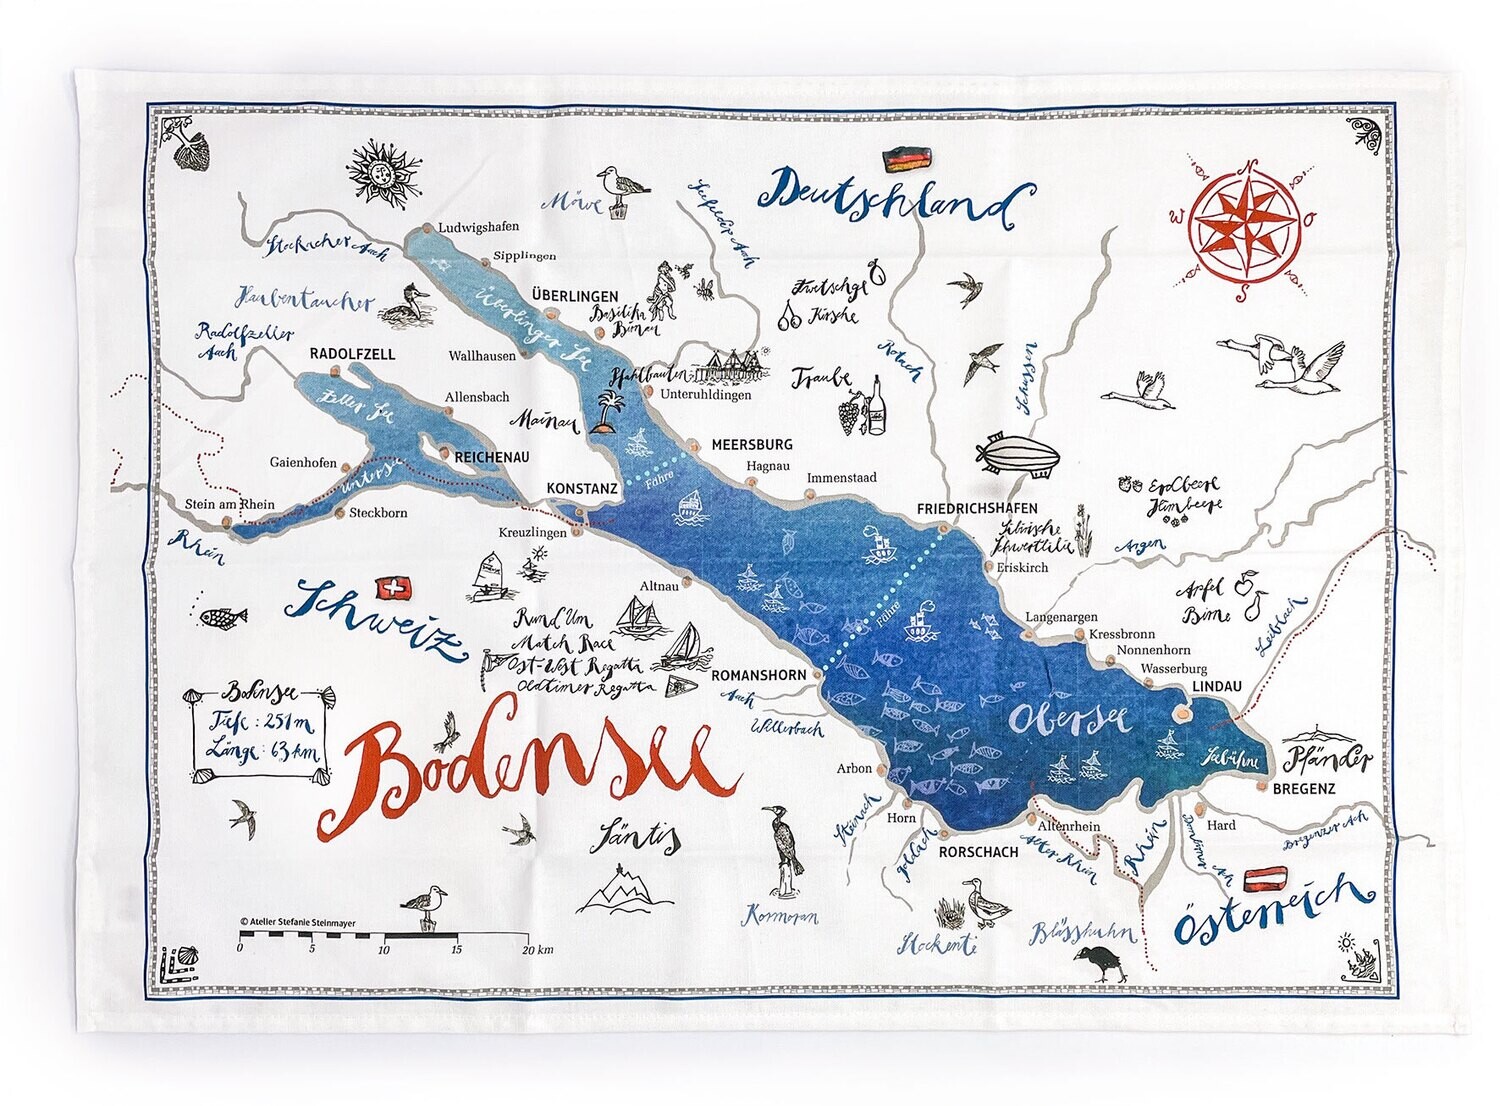 Deutschland
N
W
O
S
Möwe
Seefelder Aach
Stockacher Aach
Ludwigshafen
Sipplingen
Haubentaucher
Überlinger See
ÜBERLINGEN
Basilika
Birnau
Zwetschge
Kirsche
Radolfzeller
Aach
RADOLFZELL
Wallhausen
Pfahlbauten
Unteruhldingen
Traube
Rotach
Schussen
Zeller See
Allensbach
Mainau
MEERSBURG
Hagnau
Immenstaad
REICHENAU
Gaienhofen
Untersee
KONSTANZ
Fähre
Erdbeere
Himbeere
Stein am Rhein
Steckborn
FRIEDRICHSHAFEN
Sibirische
Schwertlilie
Rhein
Kreuzlingen
Argen
Eriskirch
Schweiz
Altnau
Apfel
Birne
Leiblach
Fähre
Rund Um
Match Race
Ost-West Regatta
Oldtimer Regatta
Langenargen
Kressbronn
Nonnenhorn
Wasserburg
LINDAU
ROMANSHORN
Aach
Wilerbach
Obersee
Bodensee
Tiefe: 251 m
Länge: 63 km
Bodensee
Seebühne
Pfänder
BREGENZ
Arbon
Horn
Steinach
Goldach
RORSCHACH
Altenrhein
Alter Rhein
Rhein
Dornbirner Ach
Hard
Bregenzer Ach
Säntis
Kormoran
Stockente
Blässhuhn
Österreich
© Atelier Stefanie Steinmayer
0 5 10 15 20 km